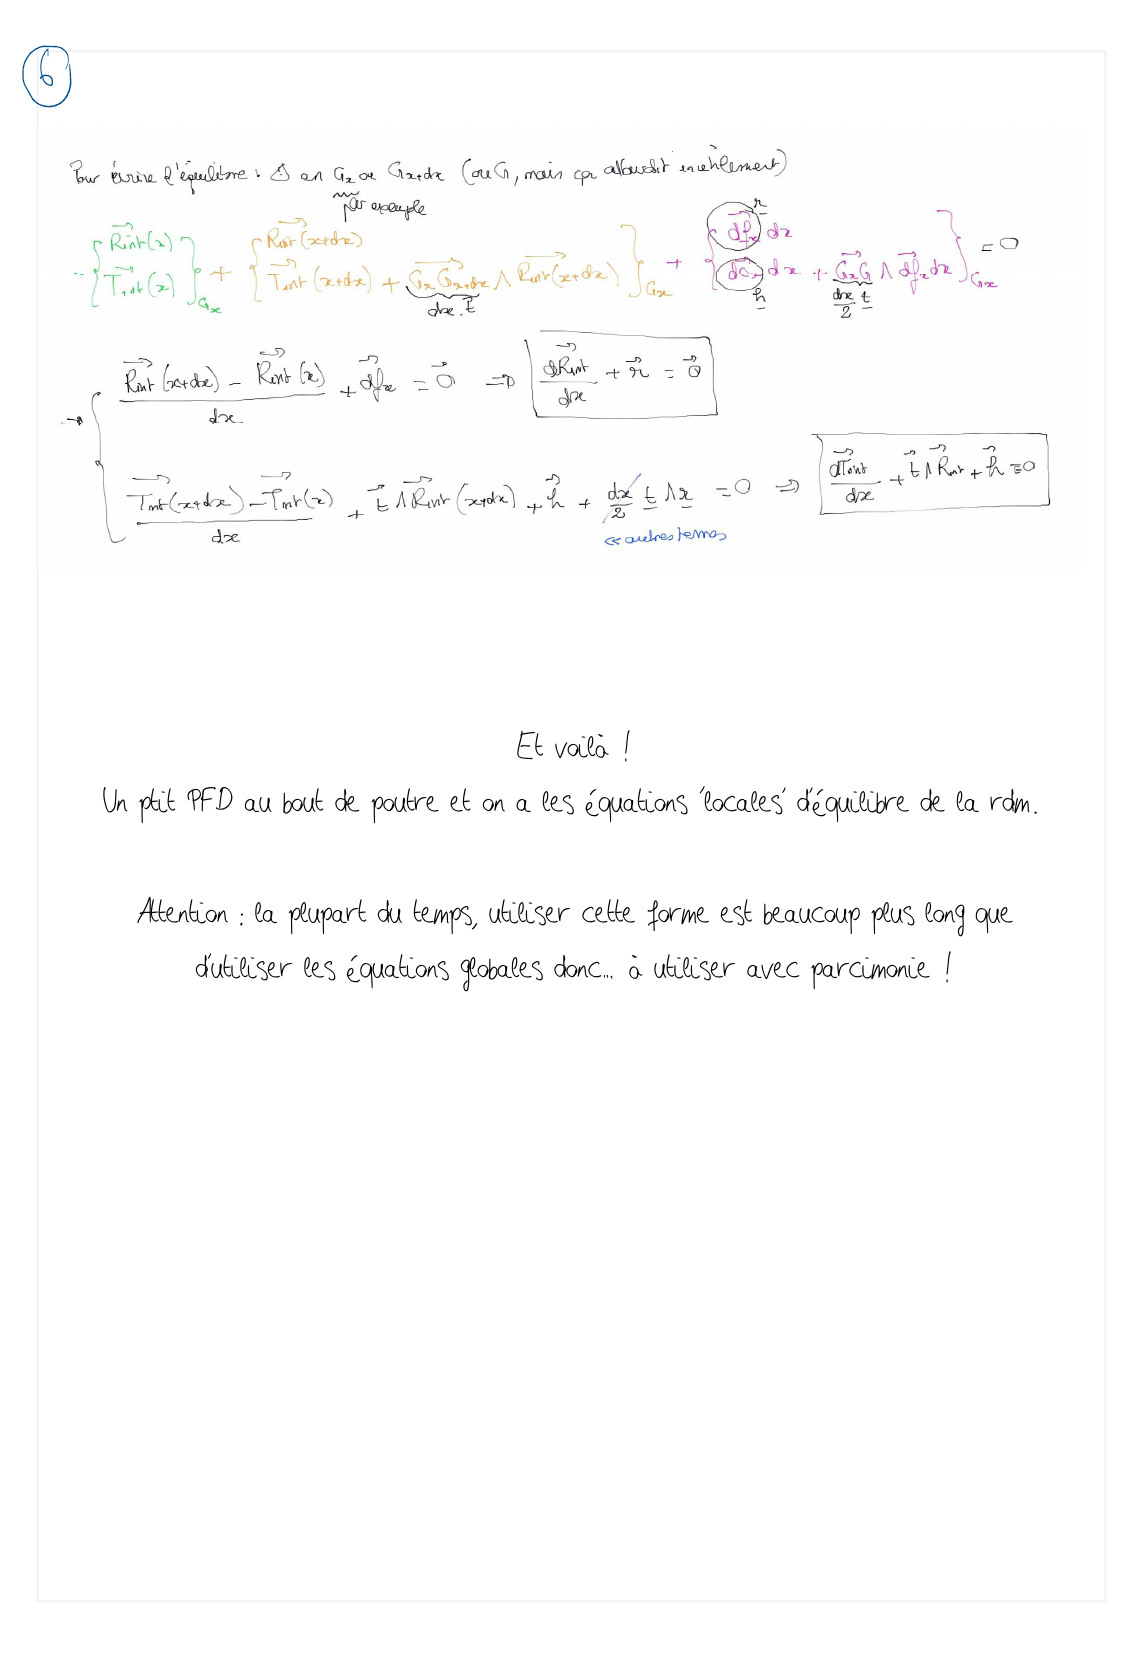 6
Pour écrire l'équilibre : Δ en Gx ou Gx+dx (ou G, mais ça alourdit inutilement)
par exemple
- { Rint(x) ; Tint(x) }Gx + { Rint(x+dx) ; Tint(x+dx) + GxGx+dx ∧ Rint(x+dx) }Gx + { dfx dx ; dcx dx + GxG ∧ dfx dx }Gx = 0
r
dx.t
h
dx/2 t
→ { (Rint(x+dx) - Rint(x))/dx + dfx = 0 ⇒ dRint/dx + r = 0
(Tint(x+dx) - Tint(x))/dx + t ∧ Rint(x+dx) + h + dx/2 t ∧ r = 0 ⇒ dTint/dx + t ∧ Rint + h = 0
<< autres termes
Et voilà !
Un ptit PFD au bout de poutre et on a les équations 'locales' d'équilibre de la rdm.
Attention : la plupart du temps, utiliser cette forme est beaucoup plus long que
d'utiliser les équations globales donc... à utiliser avec parcimonie !